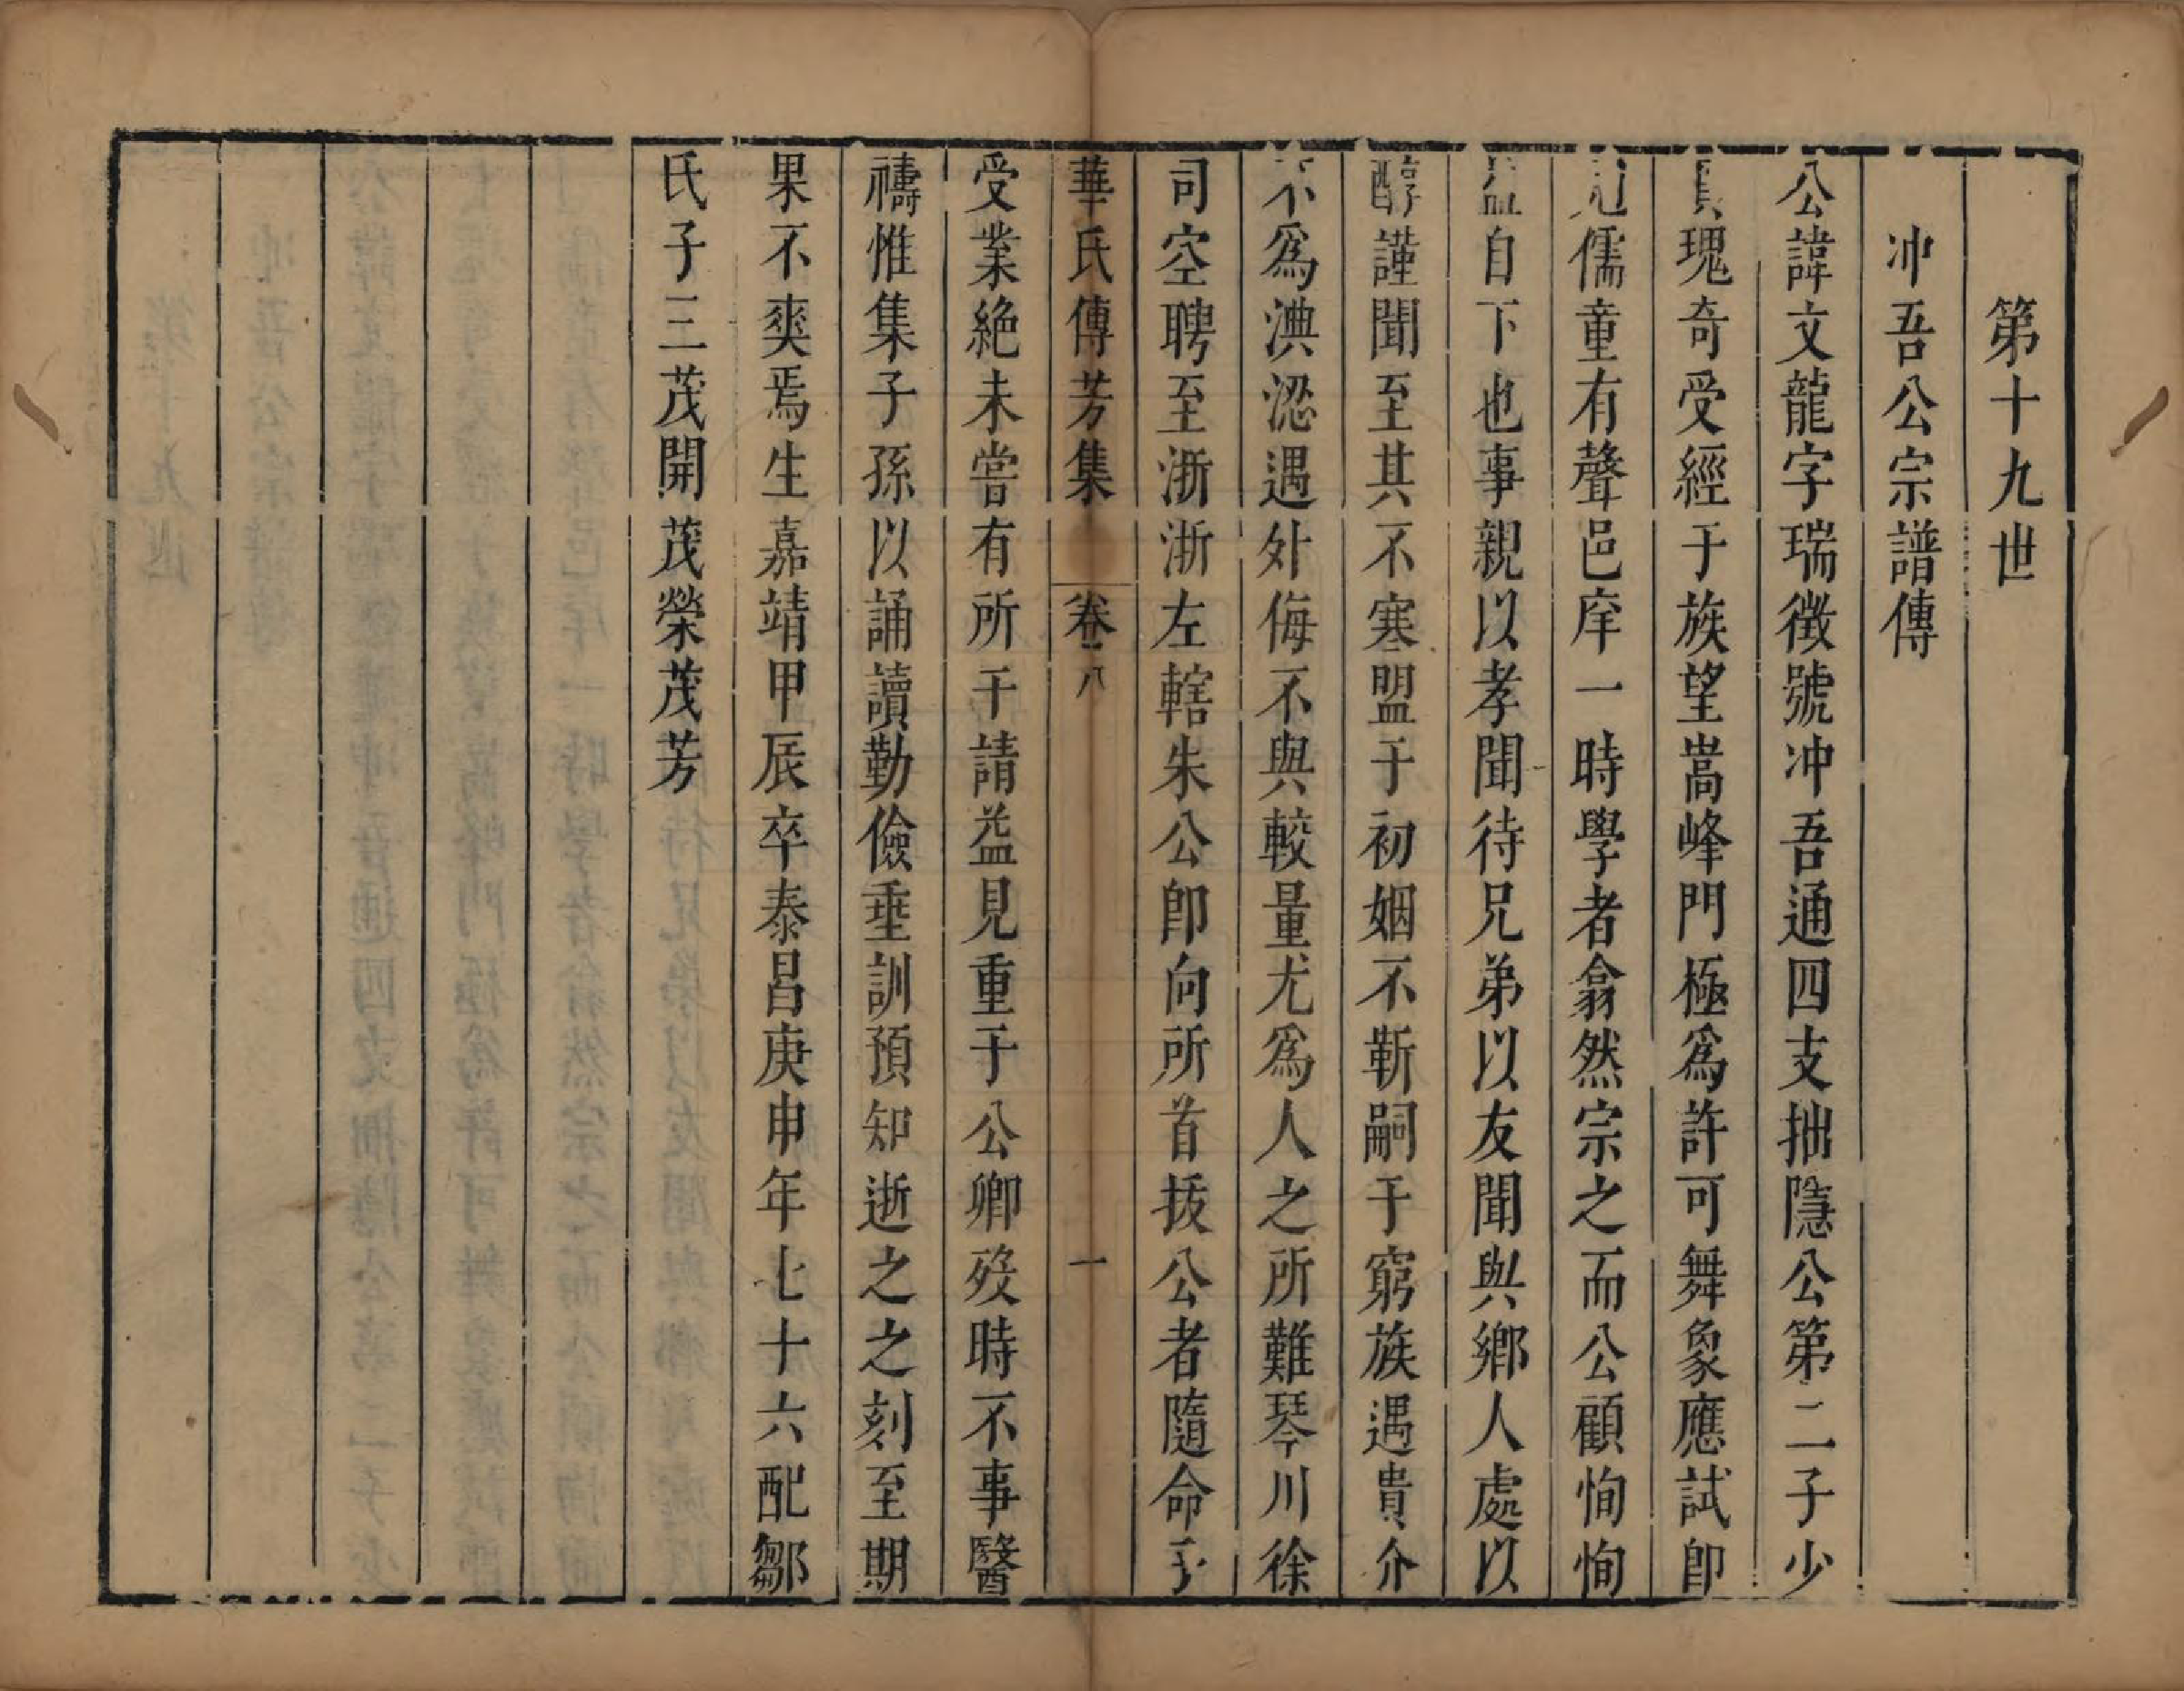 第十九世
冲吾公宗譜傳
公諱文龍字瑞徴號冲吾通四支拙隱公第二子少
負瑰奇受經于族望嵩峰門極爲許可舞象應試卽
冠儒童有聲邑庠一時學者翕然宗之而公顧恂恂
益自下也事親以孝聞待兄弟以友聞與鄉人處以
醇謹聞至其不寒盟于初姻不靳嗣于窮族遇貴介
不爲淟涊遇外侮不與較量尤爲人之所難琴川徐
司空聘至浙浙左轄朱公卽向所首拔公者隨命子
華氏傳芳集 卷八 一
受業絶未嘗有所干請益見重于公卿歿時不事醫
禱惟集子孫以誦讀勤儉垂訓預知逝之之刻至期
果不爽焉生嘉靖甲辰卒泰昌庚申年七十六配鄒
氏子三茂開茂榮茂芳